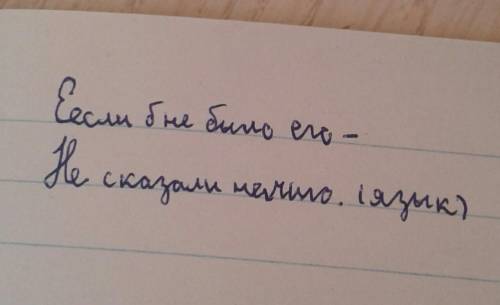 Еесли б не было его -
Не сказали нечшо. (язык)